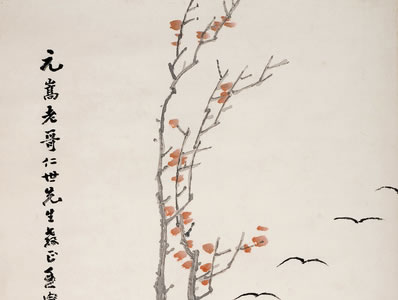 元嵩老哥仁世先生教正